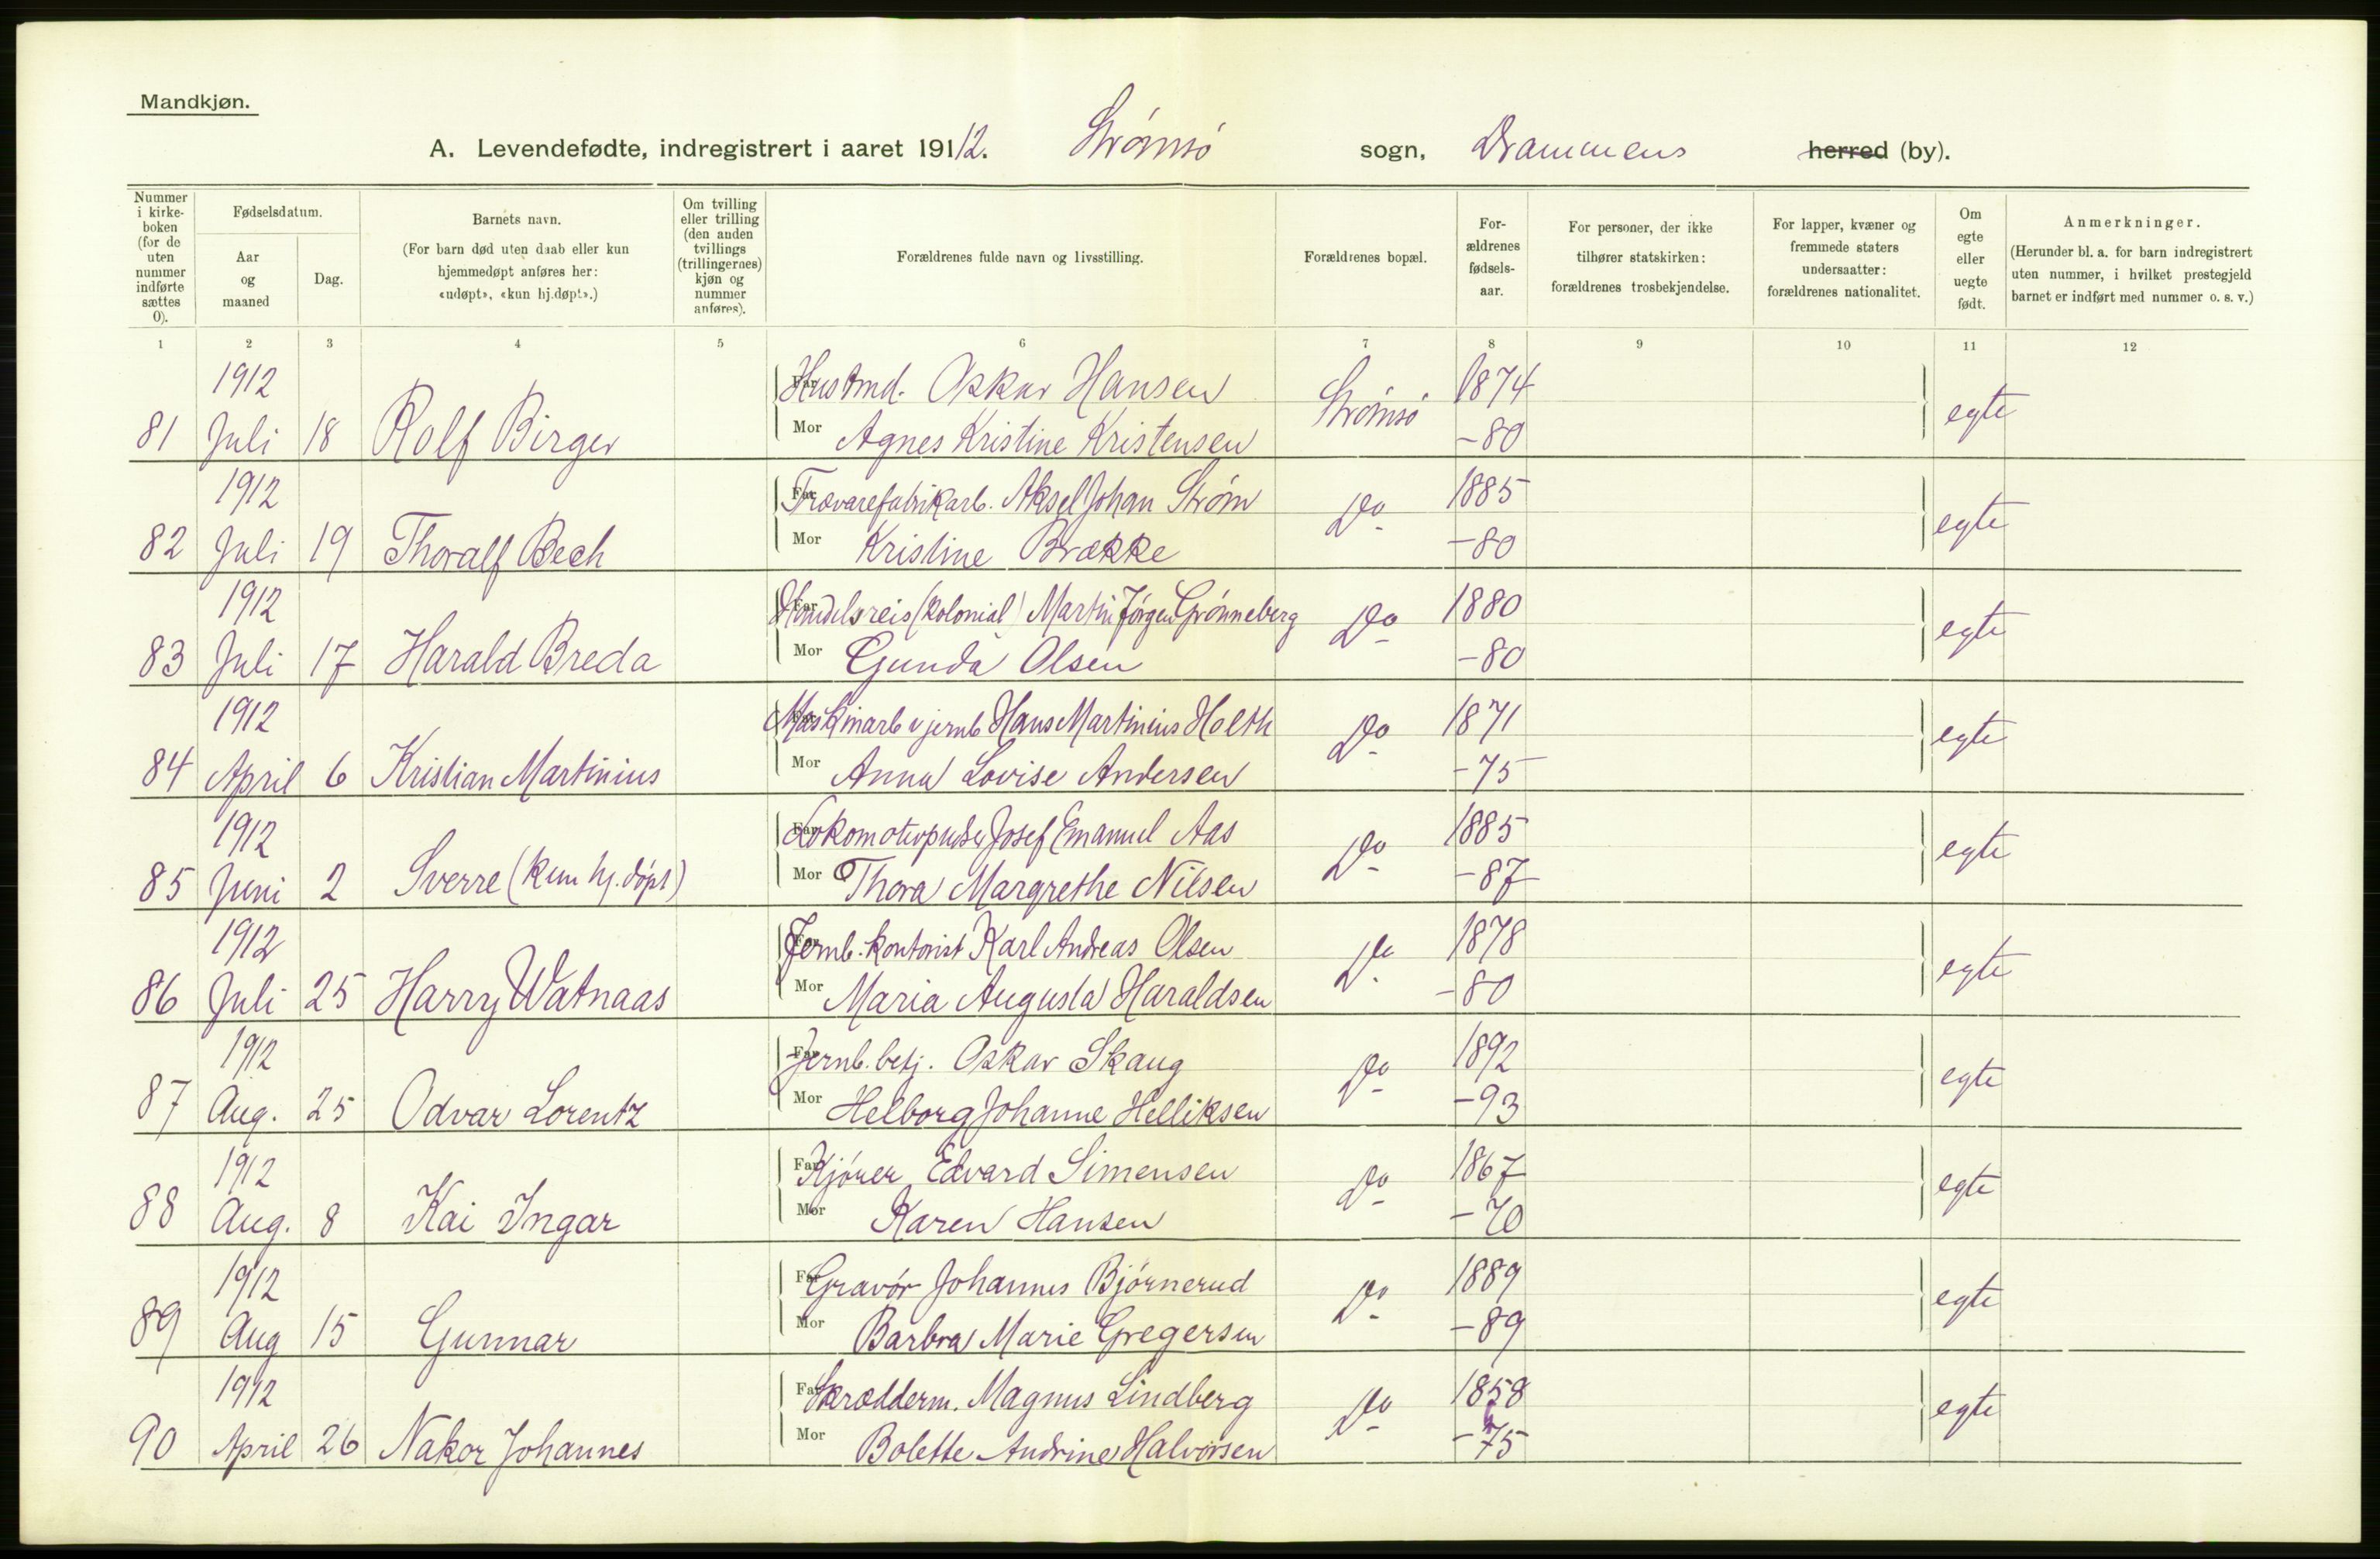 Mandkjøn.
A. Levendefødte, indregistrert i aaret 1912. Strømsø sogn, Drammens herred (by).
Nummer i kirkeboken (for de uten nummer indførte sættes 0).
Fødselsdatum.
Aar og maaned
Dag.
Barnets navn.
(For barn død uten daab eller kun hjemmedøpt anføres her: «udøpt», «kun hj.døpt».)
Om tvilling eller trilling (den anden tvillings (trillingernes) kjøn og nummer anføres).
Forældrenes fulde navn og livsstilling.
Forældrenes bopæl.
Forældrenes fødselsaar.
For personer, der ikke tilhører statskirken: forældrenes trosbekjendelse.
For lapper, kvæner og fremmede staters undersaatter: forældrenes nationalitet.
Om egte eller uegte født.
Anmerkninger.
(Herunder bl. a. for barn indregistrert uten nummer, i hvilket prestegjeld barnet er indført med nummer o. s. v.)
1 2 3 4 5 6 7 8 9 10 11 12
1912 Far Oskar Hansen Strømsø 1874
81 Juli 18 Rolf Birger Mor Agnes Kristine Kristensen -80 egte
1912 Far Trævarefabrikarb. Aksel Johan Strøm Do 1885
82 Juli 19 Thoralf Bech Mor Kristine Brække -80 egte
1912 Far Handelsreis (Kolonial) Martin Jørgen Grønneberg Do 1880
83 Juli 17 Harald Breda Mor Gunda Olsen -80 egte
1912 Far Maskinarb v jernb Hans Martinius Holth Do 1871
84 April 6 Kristian Martinius Mor Anna Lovise Andersen -75 egte
1912 Far Lokomotivpudser Josef Emanuel Aas Do 1885
85 Juni 2 Sverre (kun hj. døpt) Mor Thora Margrethe Nilsen -87 egte
1912 Far Jernb. kontorist Karl Andreas Olsen Do 1878
86 Juli 25 Harry Watnaas Mor Maria Augusta Haraldsen -80 egte
1912 Far Jernb. betj. Oskar Skaug Do 1892
87 Aug. 25 Odvar Lorentz Mor Helborg Johanne Helliksen -93 egte
1912 Far Kjører Edvard Simensen Do 1867
88 Aug. 8 Kai Ingar Mor Karen Hansen -70 egte
1912 Far Gravør Johannes Bjørnerud Do 1889
89 Aug 15 Gunnar Mor Barbra Marie Gregersen -89 egte
1912 Far Skrædderm. Magnus Lindberg Do 1858
90 April 26 Nakor Johannes Mor Bolette Andrine Halvorsen -75 egte